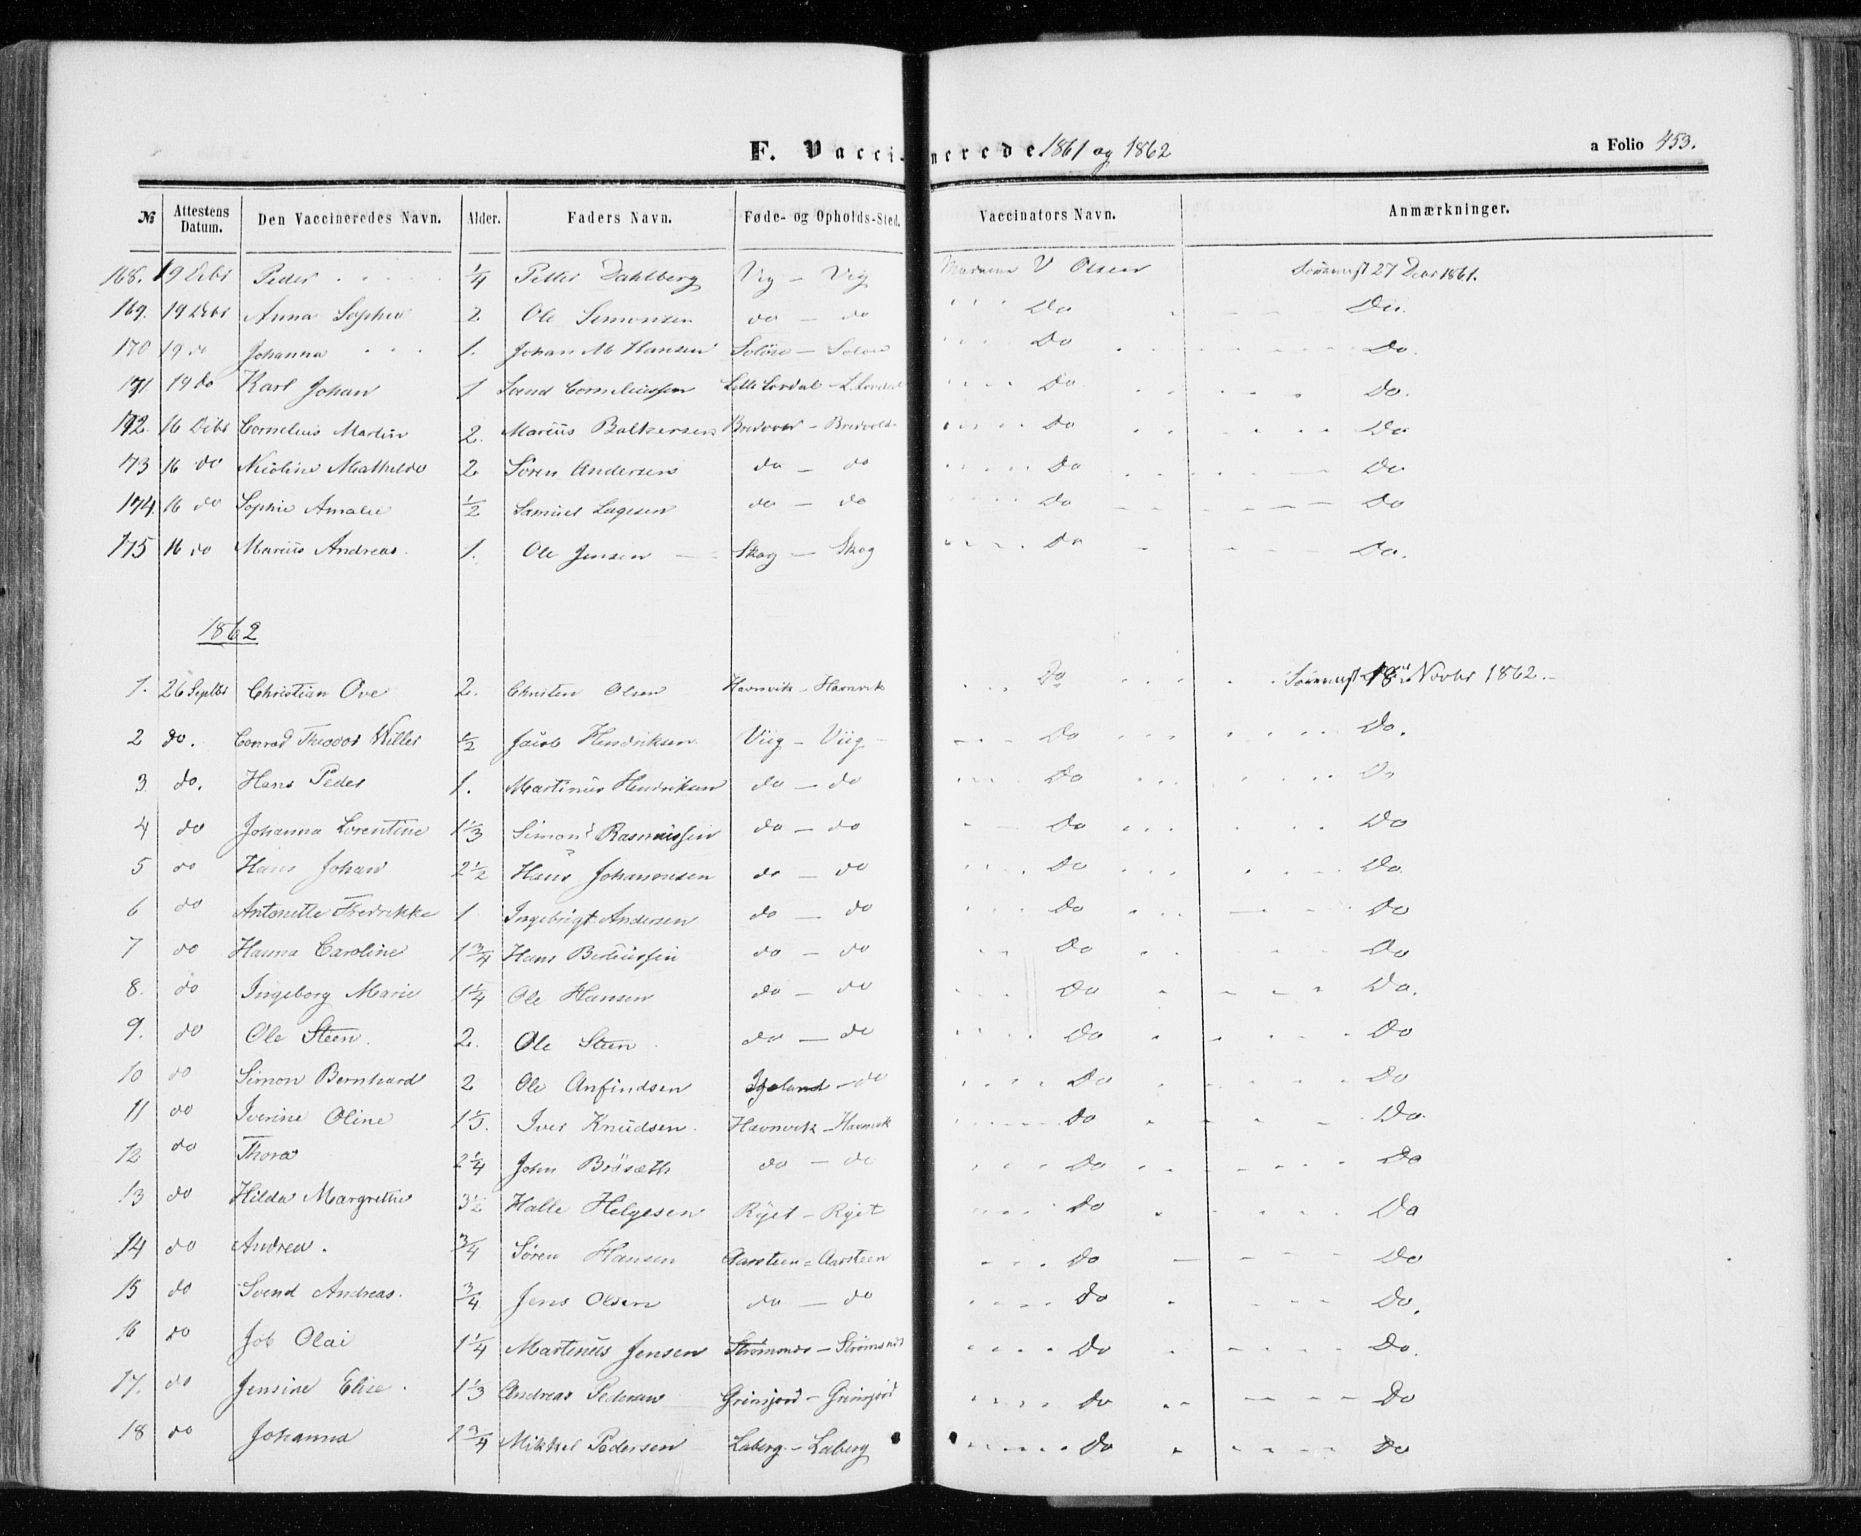 F. Vaccinerede 1861 og 1862 a Folio 453.
№ Attestens Datum. Den Vaccineredes Navn. Alder. Faders Navn. Føde- og Opholds-Sted. Vaccinators Navn. Anmærkninger.
168. 19 Debr Peder 1/4 Petter Dahlberg Vig - Vig V Olsen 27 Debr 1861.
169. 19 Debr Anna Sophie 2 Ole Simonsen do - do Do Do.
170 19 d Johanna 1. Johan M Hansen Do Do.
171 19 do Karl Johan 1 Corneliussen Do Do.
172. 16 Debr Cornelius Martin 2. Marius Balkersen - Do Do
173 16 do Nicoline Mathilde 2 Søren Andersen do - do Do Do
174. 16 do Sophie Amalie 1/2 Samuel do - do Do Do
175 16 do Marius Andreas. 1. Ole Jensen - Skog - Skog Do Do.
1862
1. 26 Septbr Christian Ove 2. Christen Olsen Havnvik - Havnvik Do 18 Novbr 1862.-
2 do. Conrad Theodor Willer 1/2 Jacob Hendriksen Viig - Viig - Do Do.
3 do. Hans Peder 1. Martinus Hendriksen do - do Do Do
4 do Johanna Lorentine 1 1/3 Simon Rasmussen do - do Do Do
5 do Hans Johan 2 1/2 Hans Johannesen do - do Do Do.
6 do Antonette Fredrikke 1 Ingebrigt Andersen do - do Do Do
7 do Hanna Caroline 1 3/4 Hans do - do Do Do
8. do Ingeborg Marie 1 1/4 Ole Hansen do - do Do Do.
9. do Ole Steen. 2. Ole Steen. do - do Do Do
10 do Simon Bernhard 2 Ole Anfindsen - do Do Do
11 do Iverine Oline 1 Iver Knudsen. Havnvik - Havnvik Do Do.
12 do Thora 2 1/4 John do - do Do Do
13 do Hilda Margrethe 3 1/2 Halle Helgesen Ryet - Ryet Do Do
14 do Andrea. 3/4 Søren Hansen Aarsteen - Aarsteen Do Do
15 do Svend Andreas. 3/4 Jens Olsen do - do Do Do.
16 do Job Olai 1 1/4 Martinus Jensen - Do Do.
17. do Jensine Elise. 1 1/3 Andreas Pedersen - Do Do
18 do Johanna 3/4 Mikkel Pedersen Laberg - Laberg Do Do